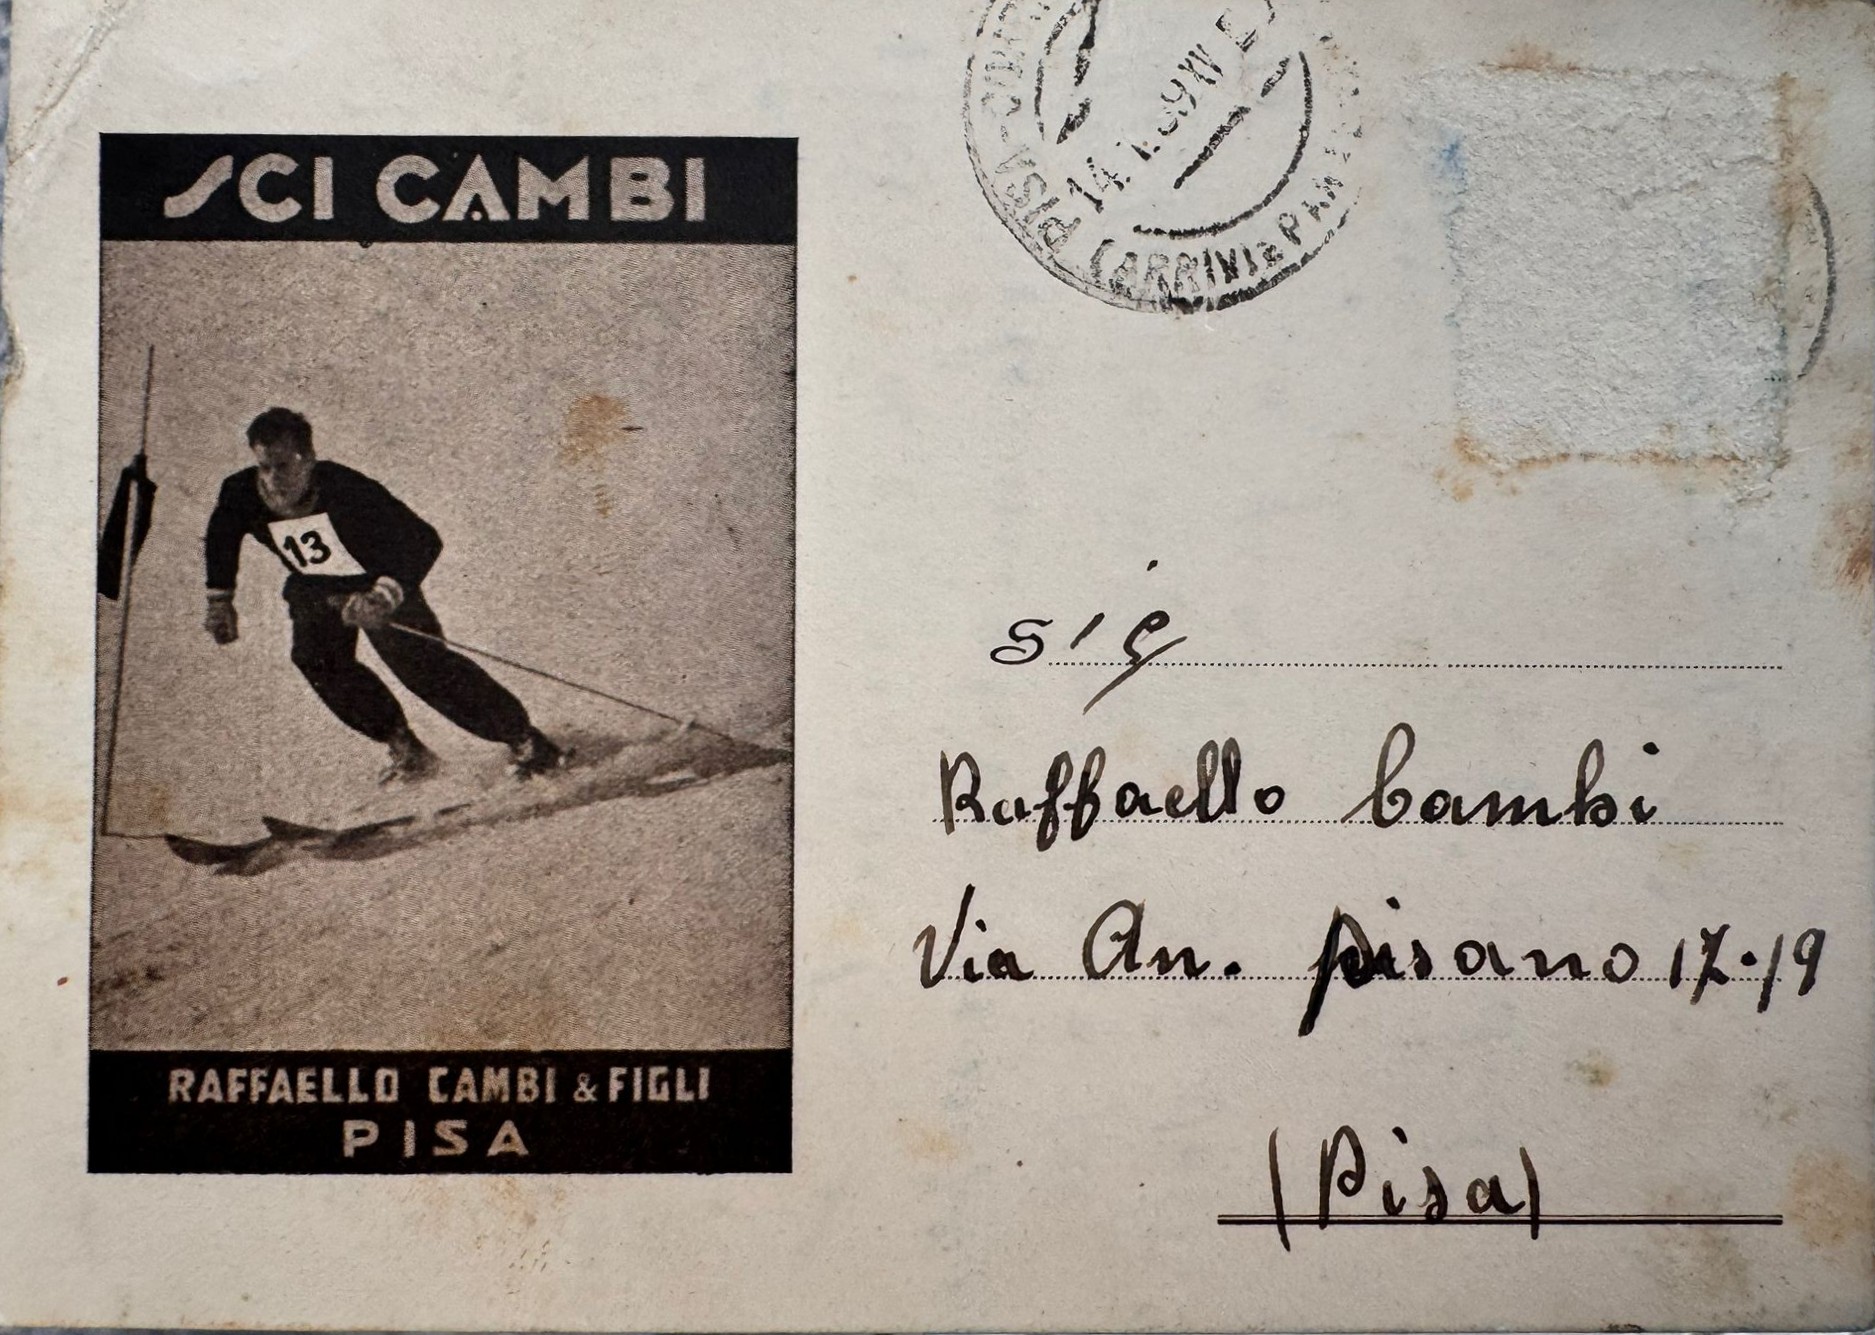 SCI CAMBI
13
RAFFAELLO CAMBI & FIGLI
PISA
PISA
14.
(ARRIVI
Sig
Raffaello Cambi
Via An. Pisano 17-19
(Pisa)